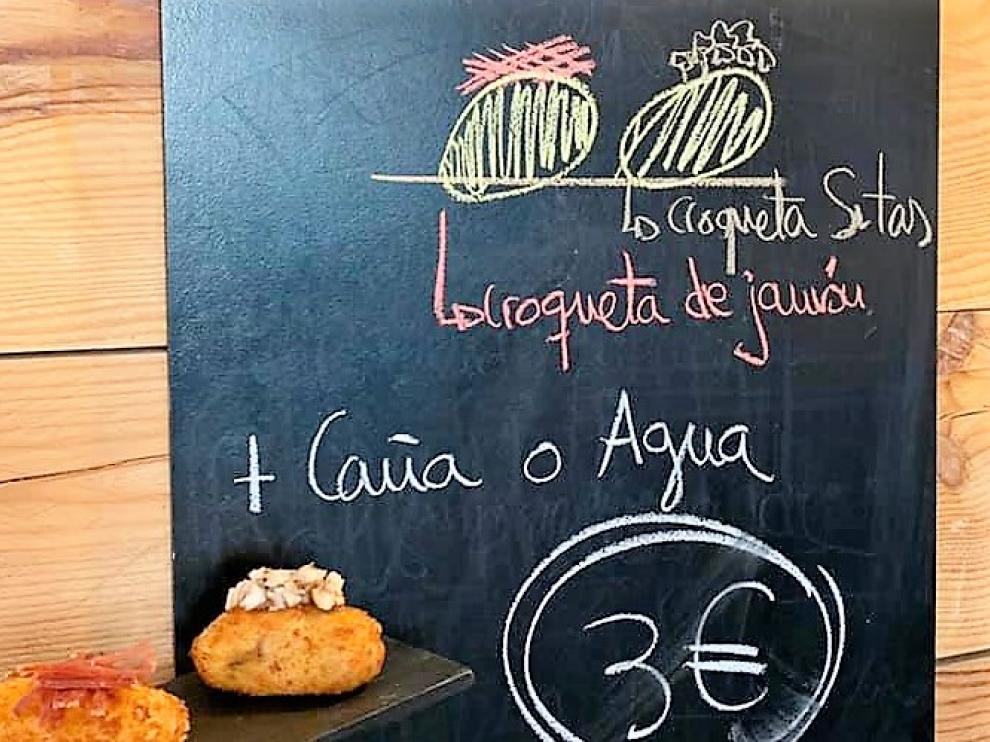 croqueta Setas
croqueta de jamón
+ Caña o Agua
3€